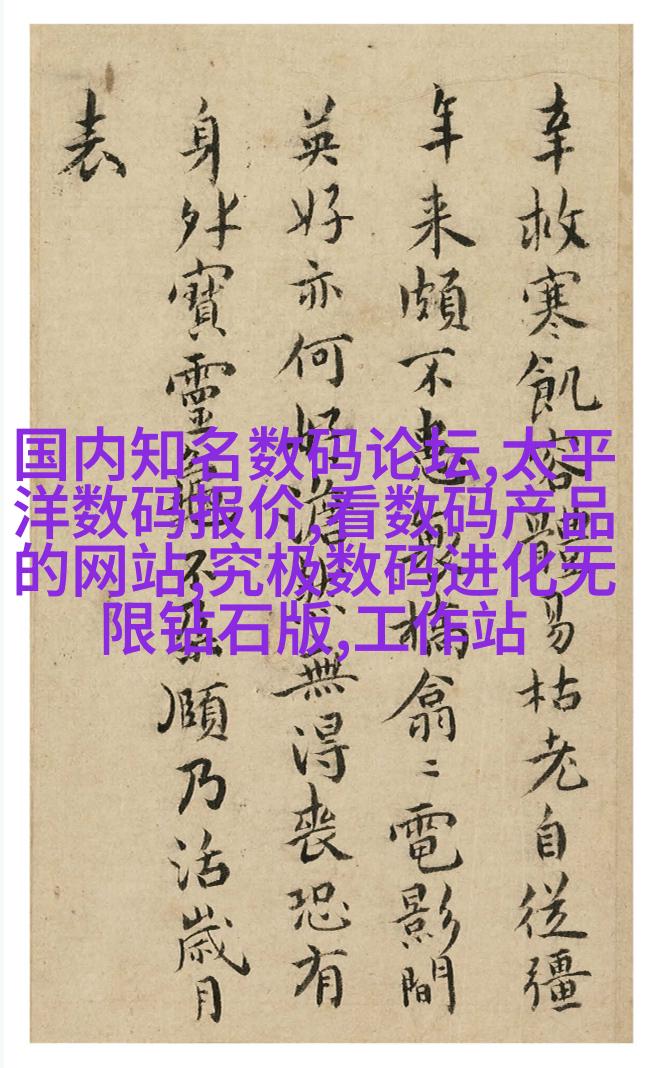 幸救寒飢容體易枯老自從彊
年来頗不患翕〻電影間
英好亦何好澹無得喪恐有
身外寶靈不頤乃活歲月
表
国内知名数码论坛,太平
洋数码报价,看数码产品
的网站,究极数码进化无
限钻石版,工作站